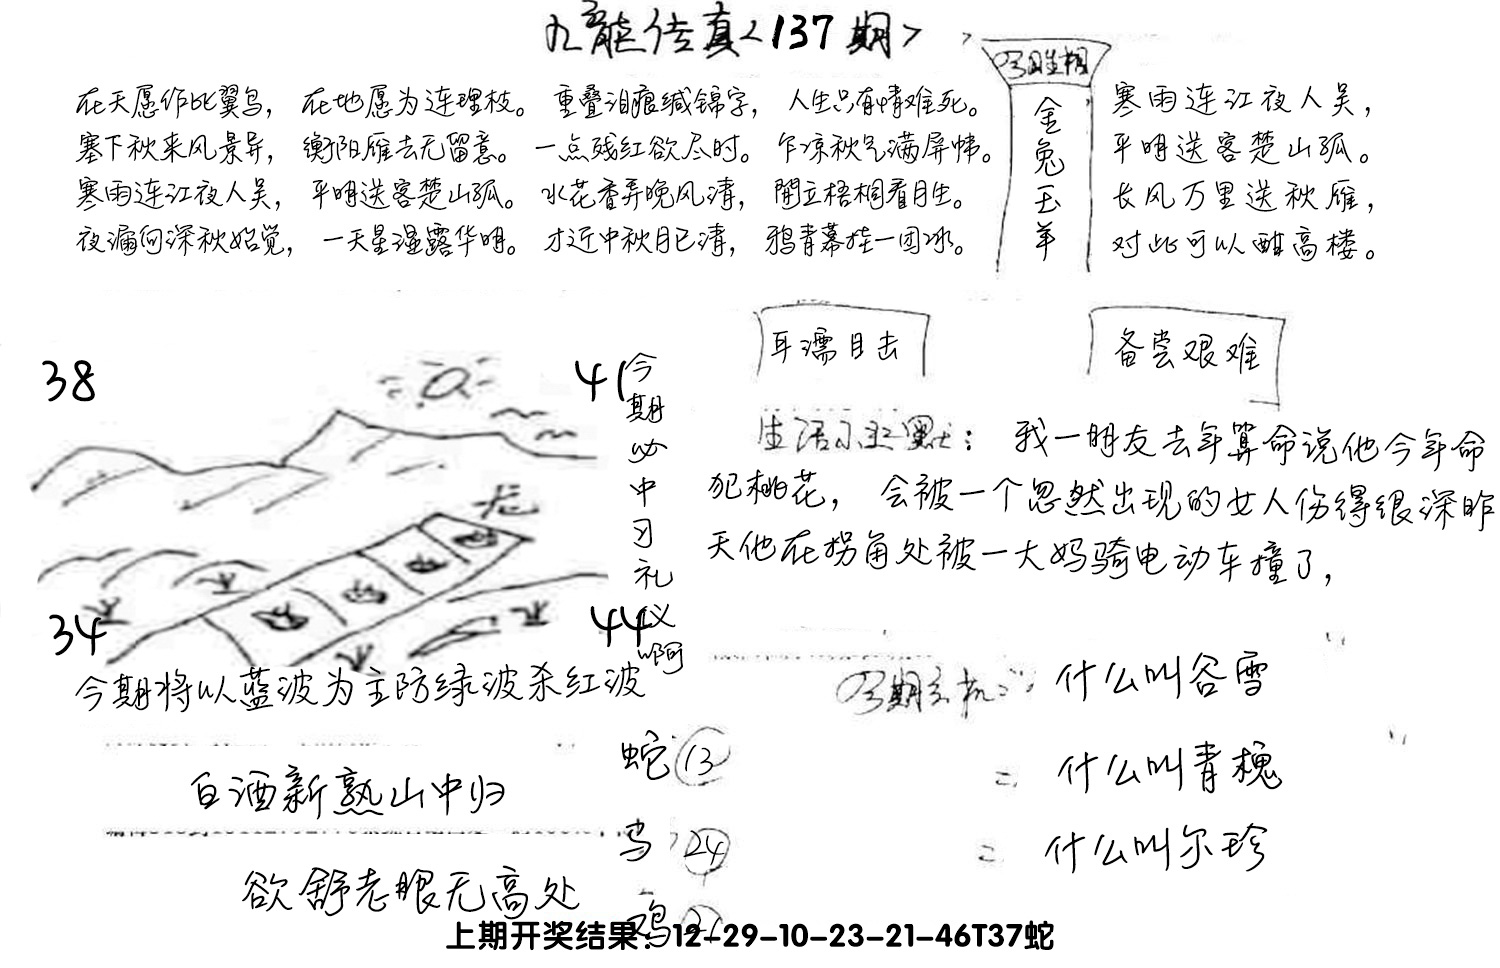 九龍传真<137期>
在天愿作比翼鸟， 在地愿为连理枝。 重叠泪痕缄锦字， 人生只有情难死。
塞下秋来风景异， 衡阳雁去无留意。 一点残红欲尽时。 乍凉秋气满屏帏。
寒雨连江夜人吴， 平明送客楚山孤。 水花香弄晚风清， 閒立梧桐看月生。
夜漏何深秋始觉， 一天星湿露华明。 才近中秋月已清， 鸦青幕挂一团冰。
今期生相
金兔玉羊
寒雨连江夜人吴，
平明送客楚山孤。
长风万里送秋雁，
对此可以酣高楼。
耳濡目击
备尝艰难
38
41
34
44
龙
今期必中习礼仪啊
今期将以蓝波为主防绿波杀红波
生活小幽默： 我一朋友去年算命说他今年命
犯桃花， 会被一个忽然出现的女人伤得很深昨
天他在拐角处被一大妈骑电动车撞了，
今期玄机： 什么叫谷雪
= 什么叫青槐
= 什么叫尔珍
白酒新熟山中归
欲舒老眼无高处
蛇 13
24
鸡 21
上期开奖结果：12-29-10-23-21-46T37蛇